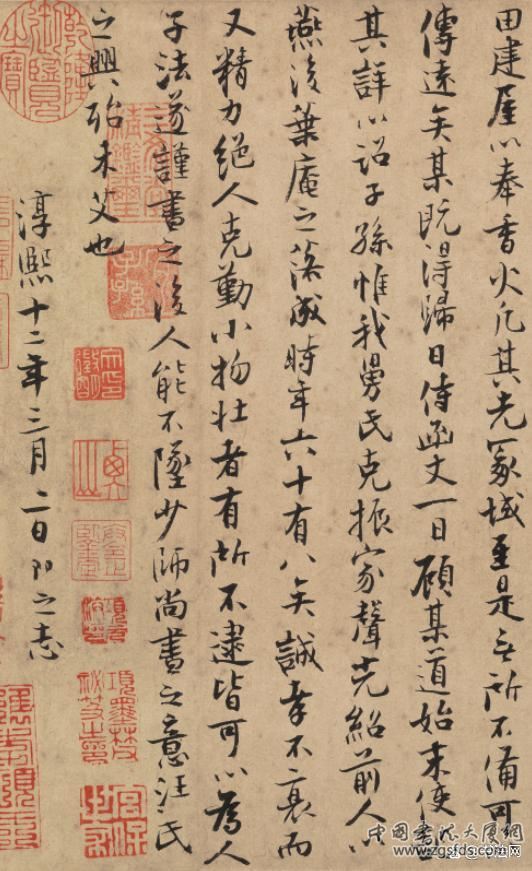 田建屋以奉香火凡其先冢域至是无所不備可
傳遠矣某既得歸日侍函丈一日顧某道始末使
其詳以詔子孫惟我舅氏克振家聲光紹前人以
燕後葉庵之落成時年六十有八矣誠幸不衰而
又精力絕人克勤小物壯者有所不逮皆可以為人
子法遂謹書之後人能不墜少師尚書之意汪氏
之興殆未艾也
淳熙十二年三月二日即之志
乾隆御覽之寶
三希堂精鑑璽
宜子孫
中国书法大厦网
www.zgsfds.com